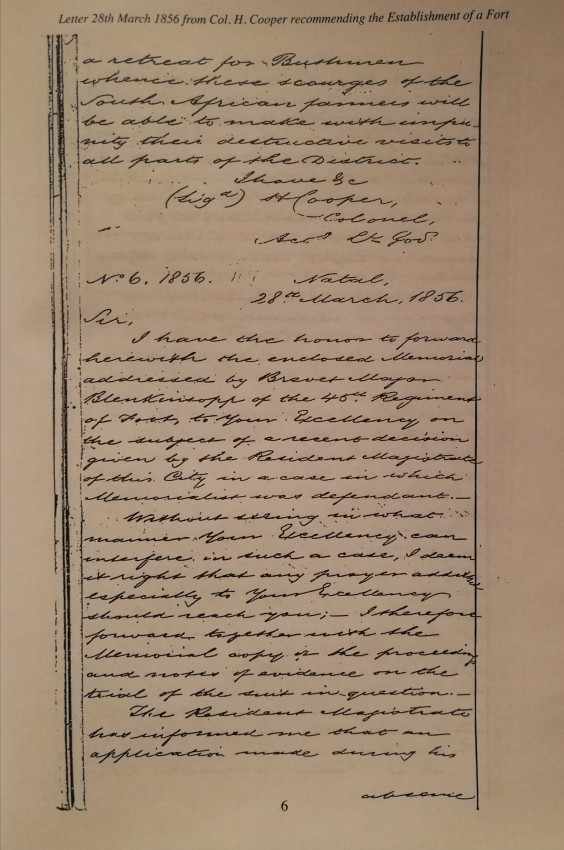 Letter 28th March 1856 from Col. H. Cooper recommending the Establishment of a Fort
a retreat for Bushmen
whence these scourges of the
South African farmers will
be able to make with impu-
nity their destructive visits to
all parts of the District.
I have &c
(Sigd) H Cooper,
Colonel,
Actg Lt. Govr.
No 6. 1856. Natal,
28th March, 1856.
Sir,
I have the honor to forward
herewith the enclosed Memorial
addressed by Brevet Major
Blenkinsopp of the 45th Regiment
of Foot, to Your Excellency on
the subject of a recent decision
given by the Resident Magistrate
of this City in a case in which
Memorialist was defendant.—
Without seeing in what
manner Your Excellency can
interfere in such a case, I deem
it right that any prayer addressed
especially to Your Excellency
should reach you;— I therefore
forward together with the
Memorial copy of the proceedings
and notes of evidence on the
trial of the suit in question.—
The Resident Magistrate
has informed me that an
application made during his
absence
6